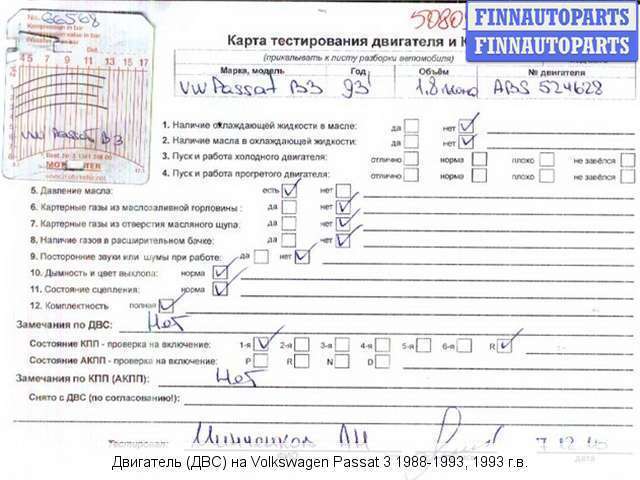 No. 66568
5080
FINNAUTOPARTS
FINNAUTOPARTS
Карта тестирования двигателя и К
(прикалывать к листу разборки автомобиля)
Марка, модель Год Объём № двигателя
VW Passat B3 93 1,8 моно ABS 524628
4 5 7 9 11 13 15 17
VW Passat B3
1. Наличие охлаждающей жидкости в масле: да нет
2. Наличие масла в охлаждающей жидкости: да нет
3. Пуск и работа холодного двигателя: отлично норма плохо не завёлся
4. Пуск и работа прогретого двигателя: отлично норма плохо не завёлся
5. Давление масла: есть нет
6. Картерные газы из маслозаливной горловины : да нет
7. Картерные газы из отверстия масляного щупа: да нет
8. Наличие газов в расширительном бачке: да нет
9. Посторонние звуки или шумы при работе: да нет
10. Дымность и цвет выхлопа: норма
11. Состояние сцепления: норма
12. Комплектность полная
Замечания по ДВС: Нет
Состояние КПП - проверка на включение: 1-я 2-я 3-я 4-я 5-я 6-я R
Состояние АКПП - проверка на включение: P R N D
Замечания по КПП (АКПП): Нет
Снято с ДВС (по согласованию!):
Тестировал:
дата
Двигатель (ДВС) на Volkswagen Passat 3 1988-1993, 1993 г.в.